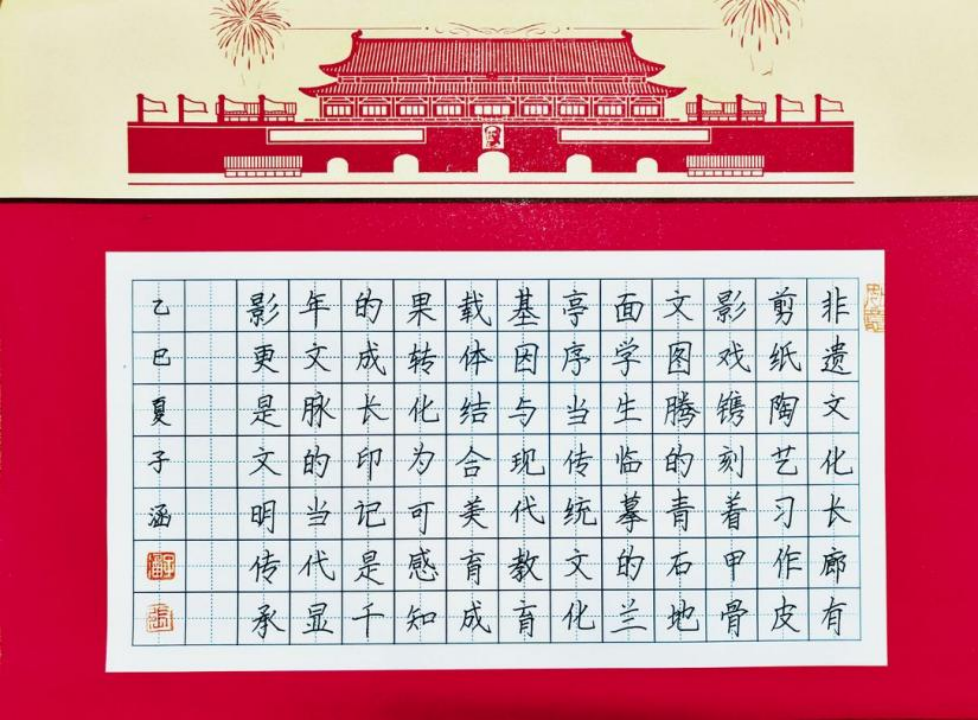 非遗文化长廊有
剪纸陶艺习作皮
影戏镌刻着甲骨
文图腾的青石地
面学生临摹的兰
亭序当传统文化
基因与现代教育
载体结合美育成
果转化为可感知
的成长印记是千
年文脉的当代显
影更是文明传承
乙巳夏子涵